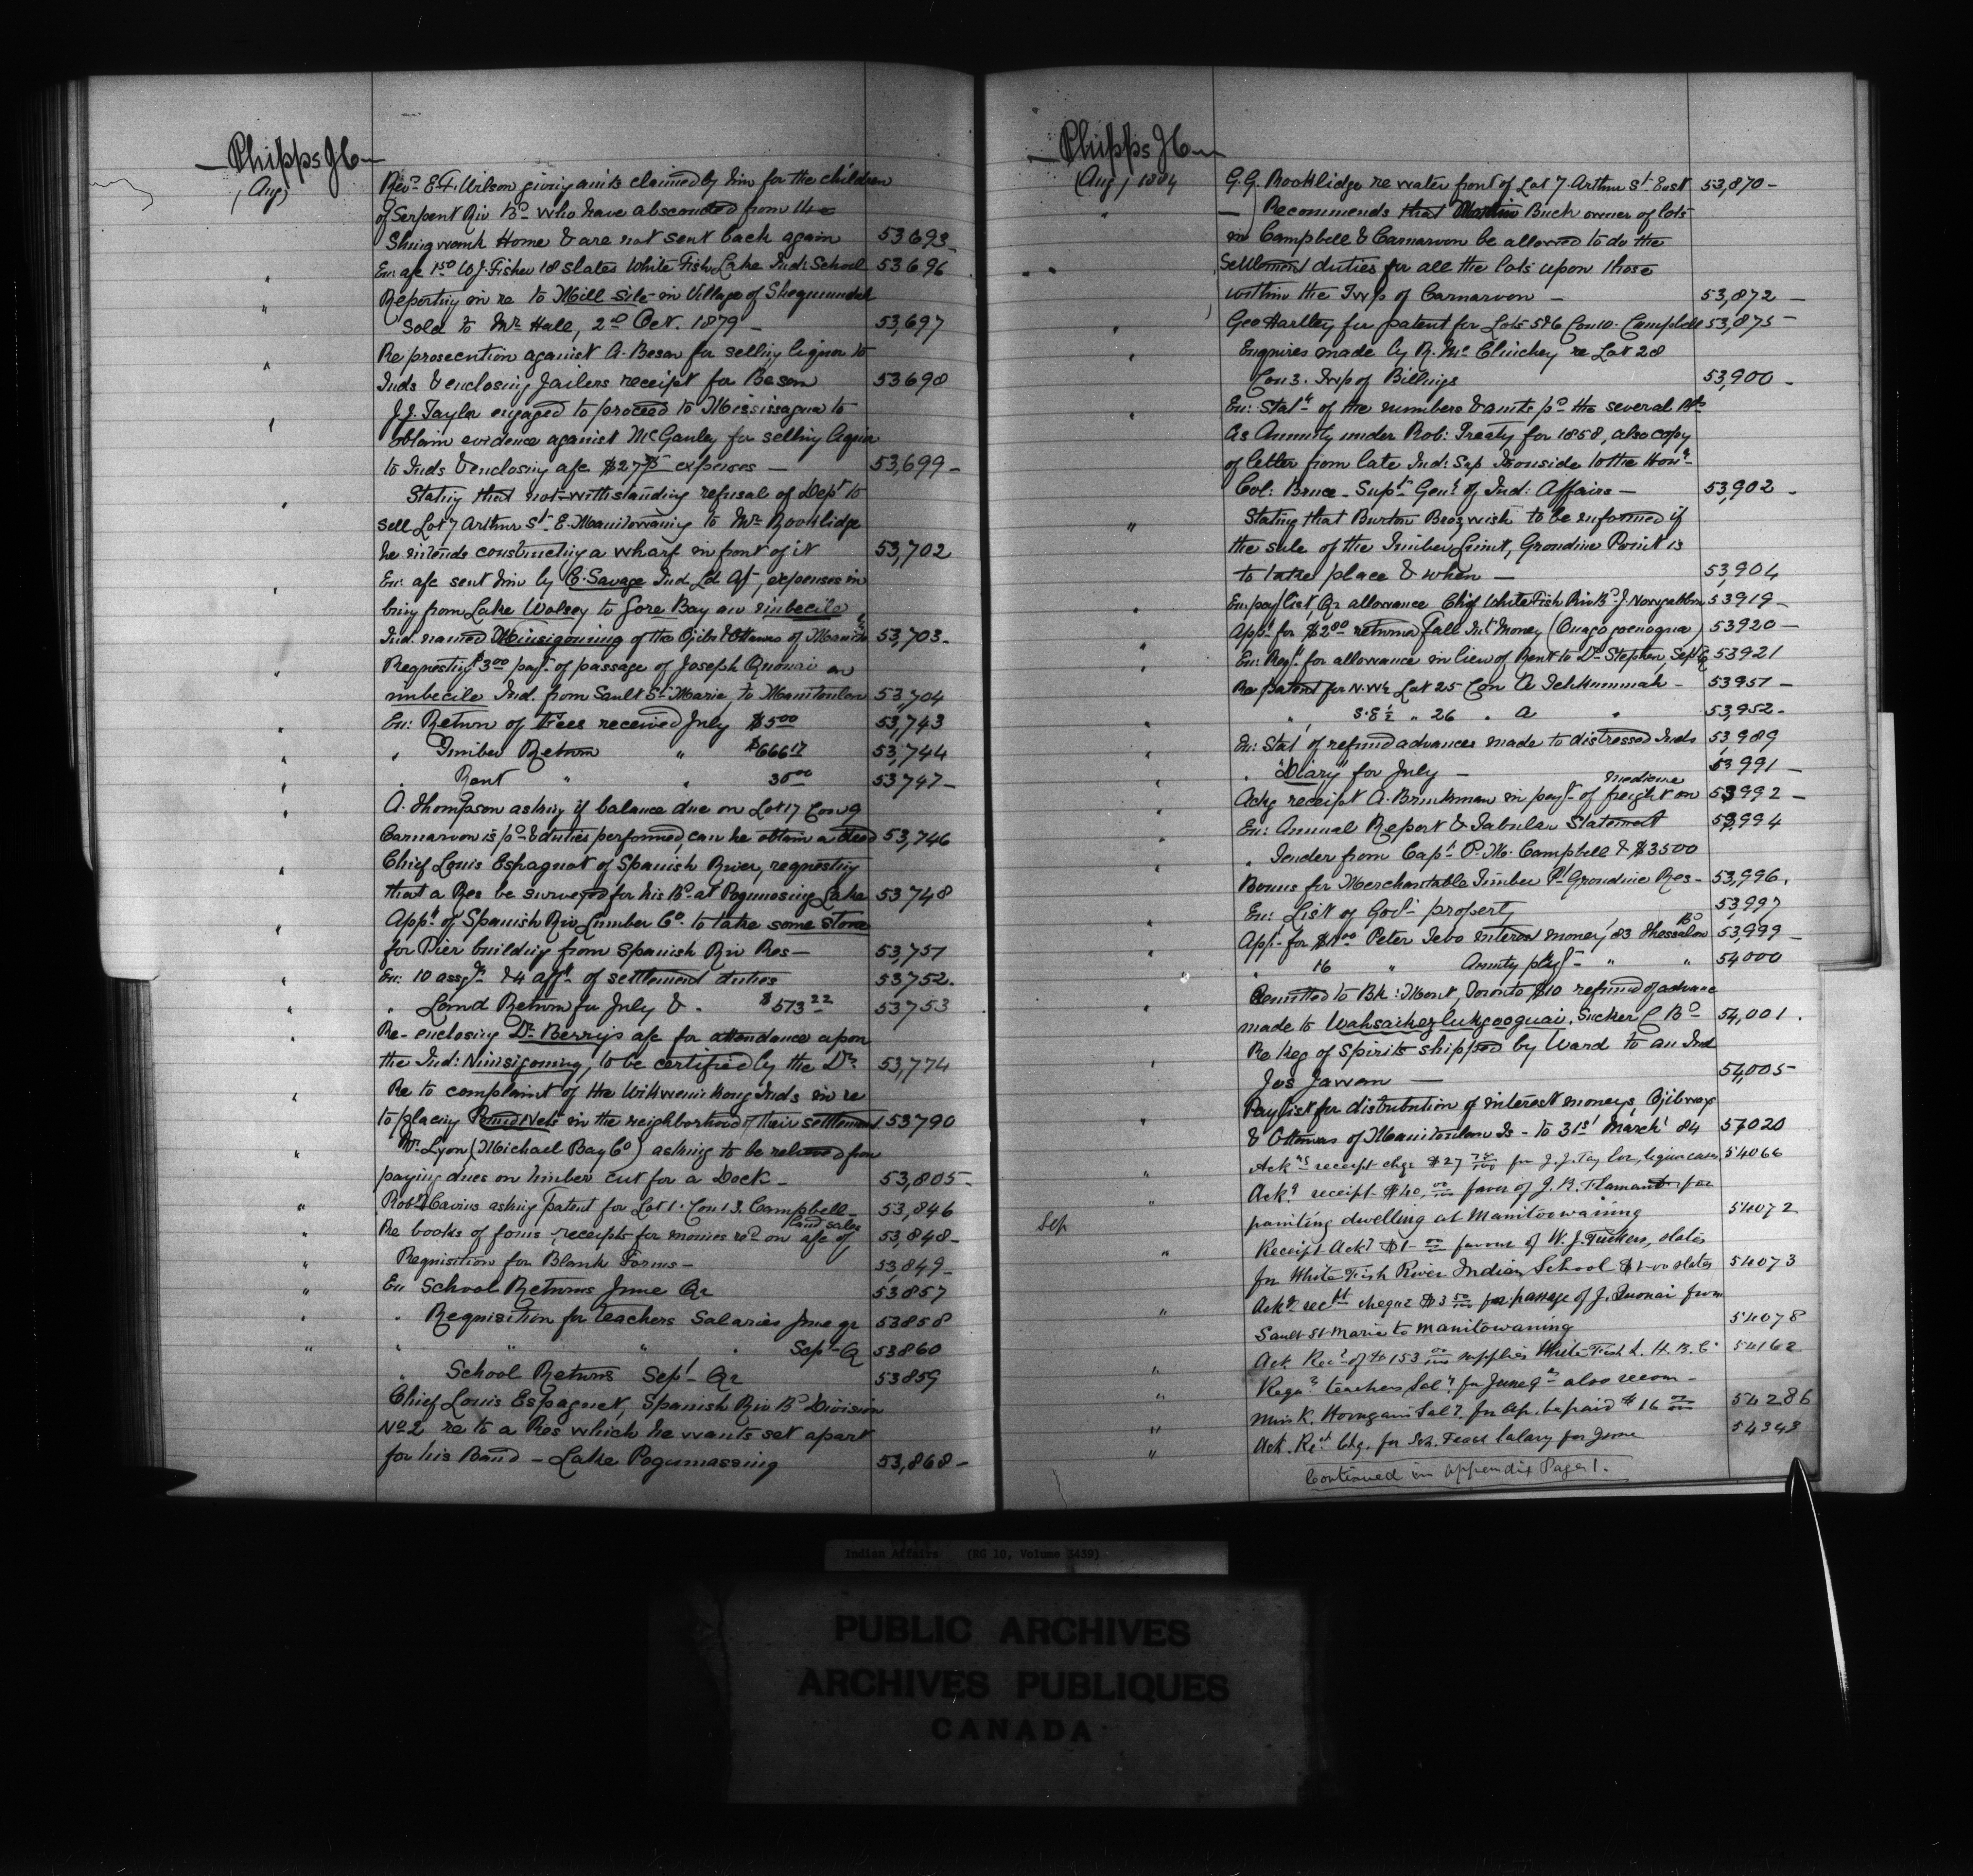 Phipps J C
(Aug)
Rev.d E.F. Wilson giving amts claimed by him for the children
of Serpent Riv B.d who have absconded from the
Shingwauk Home & are not sent back again 53693
" En: a/c 1.50 W.J. Fisher 18 slates White Fish Lake Ind: School 53696
" Reporting in re to Mill Site in Village of Sheguiandah
sold to Mr Hall, 2nd Oct. 1879 – 53,697
" Re prosecution against A. Beson for selling liquor to
Inds & enclosing Jailers receipt for Beson 53698
" J.J. Taylor engaged to proceed to Mississagua to
obtain evidence against McGauley for selling liquor
to Inds & enclosing a/c $27.75 expenses – 53,699 –
" Stating that not-withstanding refusal of Dept to
sell Lot 7 Arthur St. E. Manitowaning to Mr Rooklidge
he intends constructing a wharf in front of it 53,702
" En: a/c sent him by C. Savage Ind Ld Agt, expenses in
bring from Lake Wolsey to Gore Bay an imbecile
Ind. named Minisigoning of the Ojibs & Ottawas of Manitn 53,703 –
" Requesting $3.00 payt. of passage of Joseph Quonai an
imbecile Ind. from Sault Ste Marie, to Manitoulin 53,704
" En: Return of Fees received July $5.00 53,743
" " Timber Return " $666.17 53,744
" " Rent " " 30.00 53,747 –
" A. Thompson asking if balance due on Lot 17 Con 9
Carnarvon is pd & duties performed, can he obtain a deed 53,746
" Chief Louis Espagnot of Spanish River, requesting
that a Res be surveyed for his Bd at Pogumasing Lake 53,748
" Appn of Spanish Riv Lumber Co. to take some stone
for Pier building from Spanish Riv Res – 53,751
" En: 10 assgts & 4 affts of settlement duties 53,752.
" " Land Return for July & . $573.22 53,753
" Re-enclosing Dr. Berry's a/c for attendance upon
the Ind: Ninisigoning, to be certified by the Dr. 53,774
" Re to complaint of the Wikwemikong Inds in re
to placing Pound Nets in the neighborhood of their settlement 53790
" Mr. Lyon (Michael Bay Co) asking to be relieved from
paying dues on timber cut for a Dock – 53,805 –
" Robt Cavins asking patent for Lot 1. Con 13. Campbell – 53,846
" Re books of forms, receipts for monies recd on a/c of land sales 53,848 –
" Requisition for Blank Forms – 53,849 –
" En School Returns June Qr 53,857
" " Requisition for teachers Salaries June qr 53858
" " " " " Sept Q 53860
" School Returns Sept Qr 53859
Chief Louis Espagnot, Spanish Riv Bd Division
No 2 re to a Res which he wants set apart
for his Band – Lake Pogumassing 53,868 –
Phipps J C
(Aug) 1884
G.G. Rooklidge re water front of Lot 7. Arthur St. East 53,870 –
" – Recommends that Martin Buck owner of lots
in Campbell & Carnarvon be allowed to do the
Settlement duties for all the lots upon those
within the Twp of Carnarvon – 53,872 –
" Geo Hartley for patent for Lots 5&6 Con 10. Campbell 53,875 –
" Enquires made by R. McClinchey re Lot 28
Con 3. Twp of Billings 53,900 –
" En: Statt of the numbers & amts pd the several Bds
as Annuity under Rob: Treaty for 1858, also copy
of letter from late Ind: Sup Ironside to the Honl.
Col: Bruce – Supt. Genl. of Ind: Affairs – 53,902 –
" Stating that Burton Bros wish to be informed if
the sale of the Timber Limit, Grondine Point is
to take place & when – 53,904
" En: pay list, Qr allowance Chief White Fish Riv Bd. J. 53919 –
" Appn for $2.00 returned fall Int Money 53920 –
" En: Reqn for allowance in lieu of Rent to Dr. Stephen Sept Q 53921
" Re patent for N.W½ Lot 25 Con A Tehkummah – 53951 –
" " S.E ½ " 26 " A " 53,952 –
" En: Statt of refund advances made to distressed Inds 53,989
" " "Diary" for July – 53 991 –
" Ackg receipt A. Brinkman in payt. of freight on medicine 53992 –
" En: Annual Report & Tabular Statement 53,994
" " Tender from Capt. P.M. Campbell & $3500
Bonus for Merchantable Timber Pt Grondine Res – 53,996.
" En: List of Govt. property 53,997
" Appn. for $1.00 Peter Tebo interest money '83 Thessalon Bd 53,999 –
" " 16 " Annuity payt – " " 54000
Remitted to Bk: Mont, Toronto $10 refund of advance
made to Wahsaikezhukgooquai, Sucker C Bd 54,001.
" Re Keg of Spirits shipped by Ward to an Ind
Jos Jawan – 54,005 –
" Paylist for distribution of interest moneys, Ojibways
& Ottawas of Manitoulin Is – to 31st March '84 57020
" Ackgs receipt chqe $27 75/100 for J.J. Taylor, liquor cases 54066
" Ackg receipt $40.00 favor of J.R. Flamand for
painting dwelling at Manitoowaning 54072
Sep Receipt Ackd $1 00 favour of W.J. Fishers, slates
" for White Fish River Indian School $1.00 slates 54073
" Ackg rect cheque $3 50/100 for passage of J. Quonai from
Sault St Marie to Manitowaning 54078
" Ack Rect of $153 00/100 supplies White Fish L. H.B.C. 54162
" Reqn teachers Saly. for June qr also recom –
Miss K. Salt. for Ap. be paid $16 54286
" Ack. Rect Chq. for Sch. Teach Salary for June 54343
Continued in appendix Page 1.
Indian Affairs (RG 10, Volume 3439)
PUBLIC ARCHIVES
ARCHIVES PUBLIQUES
CANADA